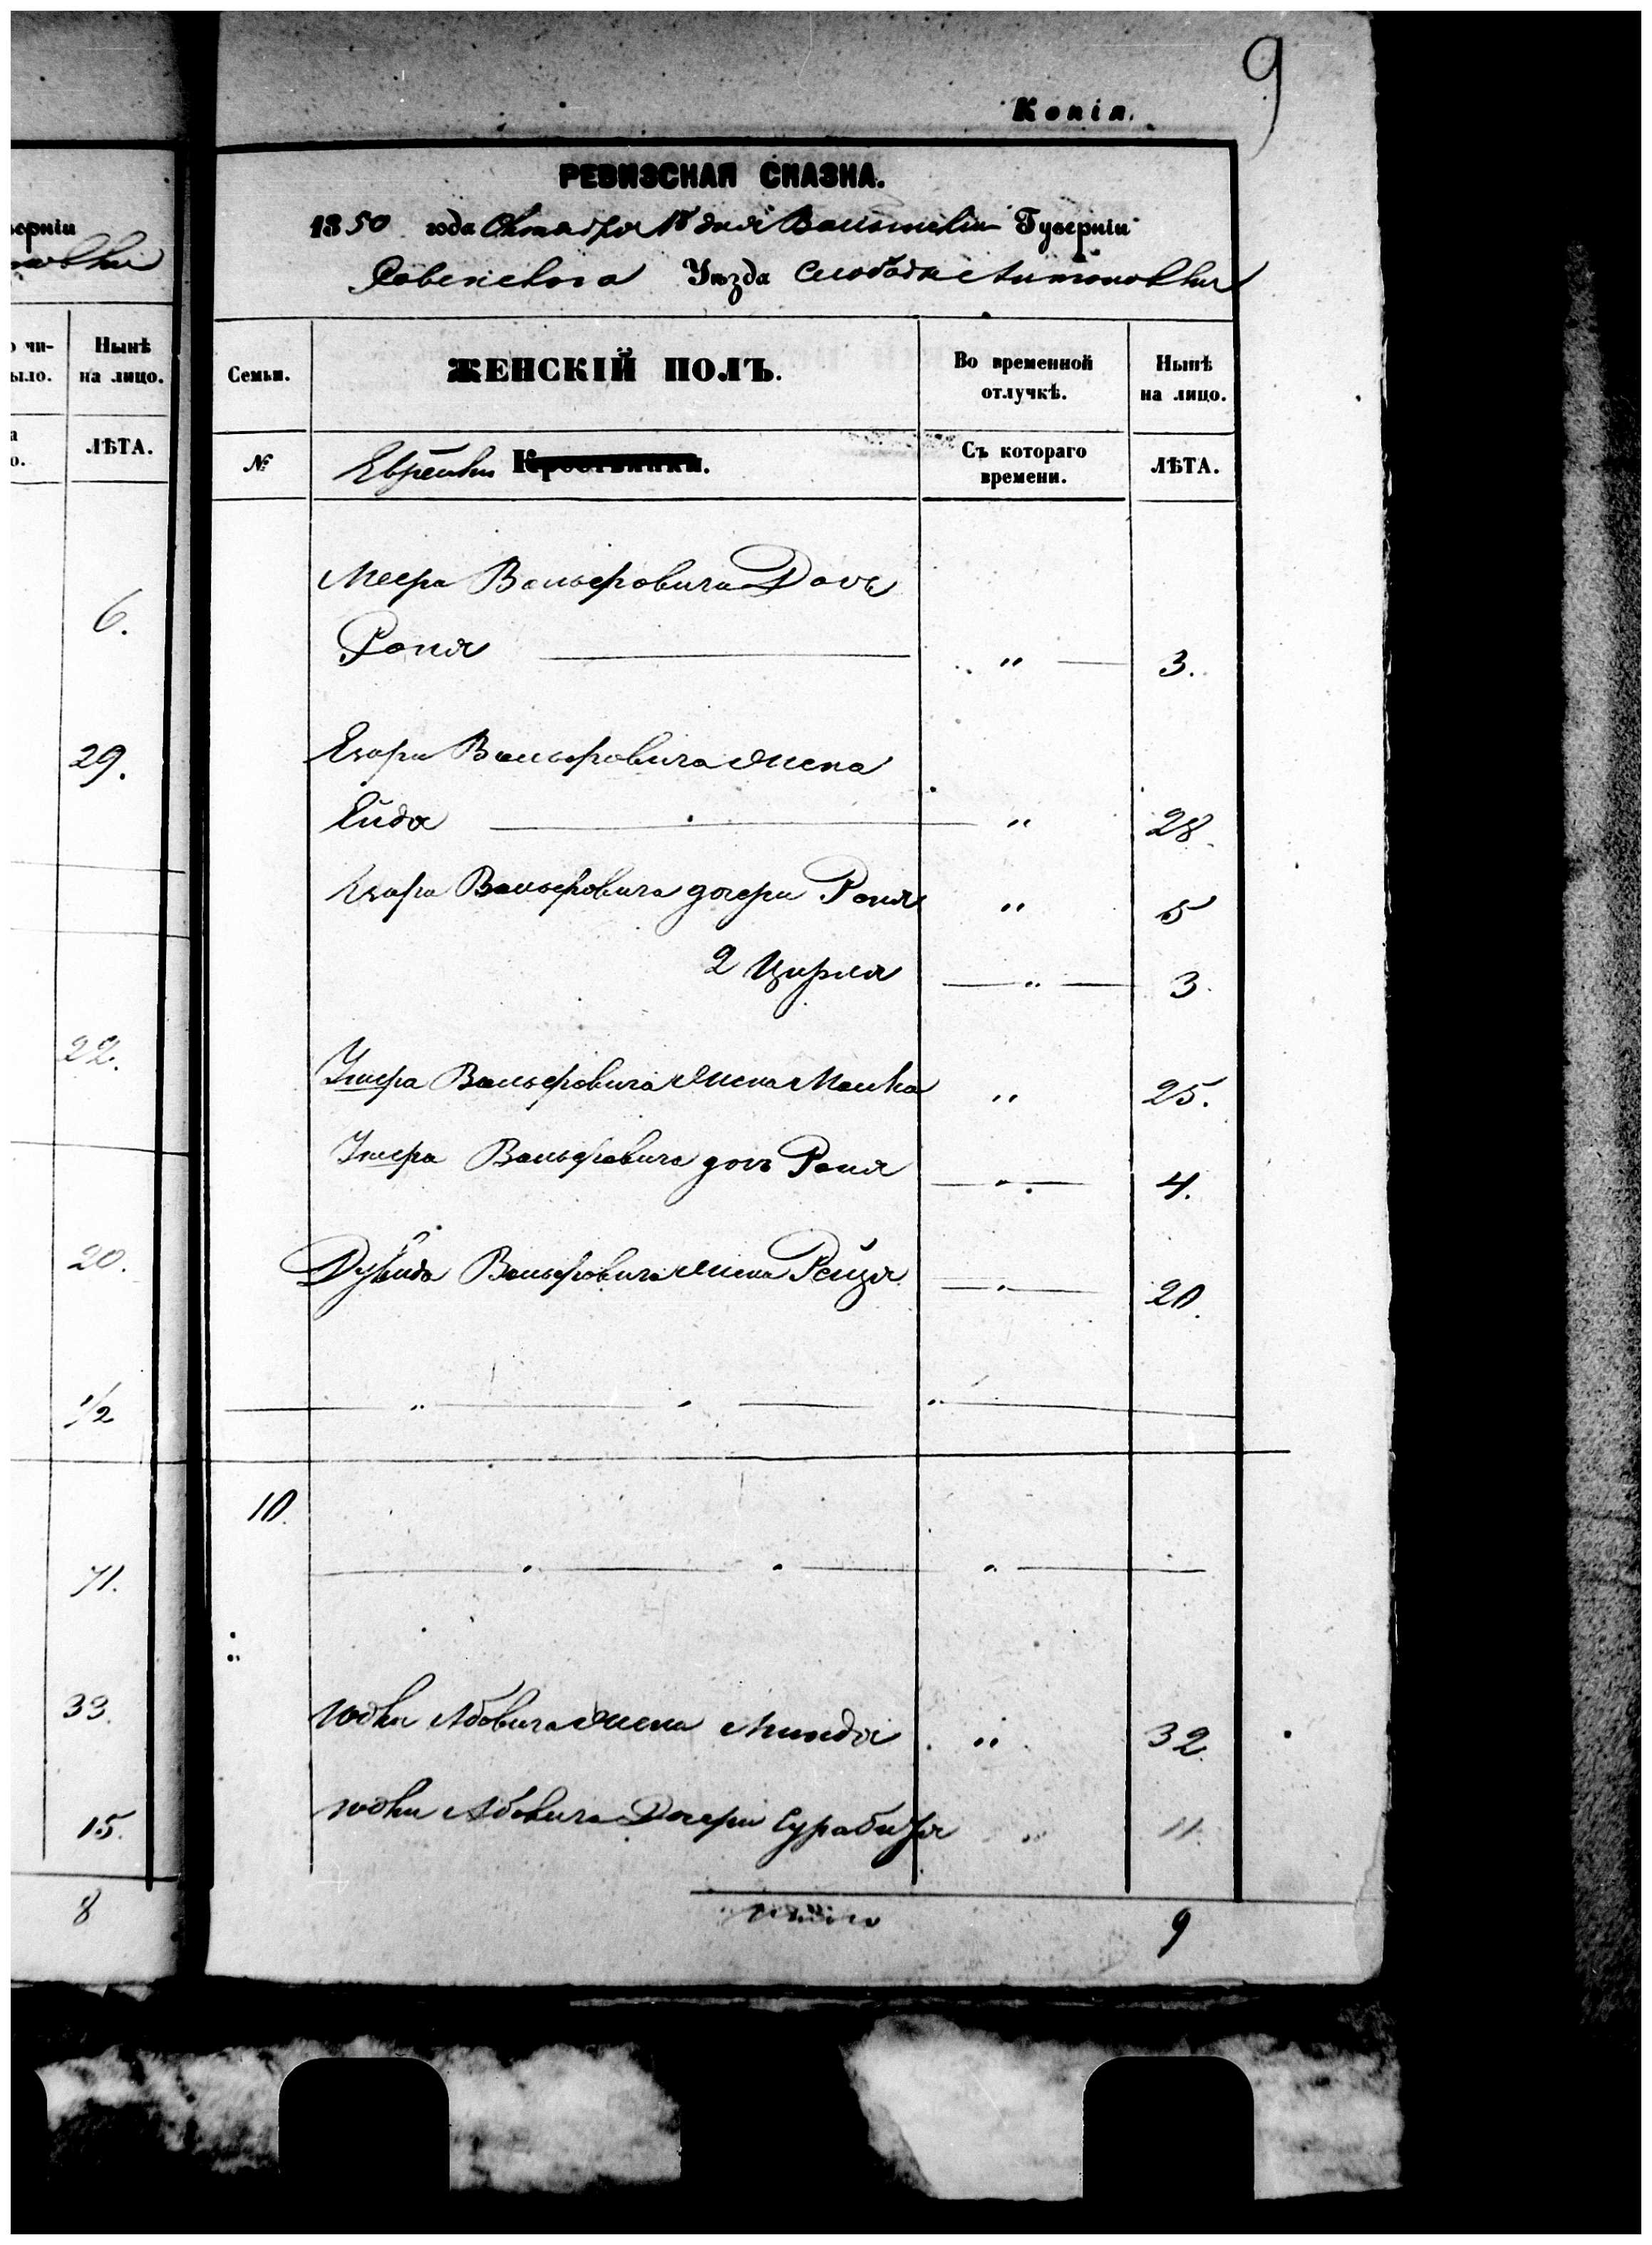 9
Копія.
РЕВИЗСКАЯ СКАЗКА.
1850 года Октября 18 дня Волынской Губерніи
Ровенского Уѣзда Слободы Антоновки
Семьи.
ЖЕНСКІЙ ПОЛЪ.
Во временной отлучкѣ.
Нынѣ на лицо.
№
Еврейки
Съ котораго времени.
ЛѢТА.
Меера Вольфовича Дочь
Роня " 3.
Вольфовича жена
Ейда " 28.
Вольфовича дочери Роня " 5
2 Цирля " 3.
Ушера Вольфовича жена Малка " 25.
Ушера Вольфовича дочь Роня " 4.
Вольфовича жена Рейзя " 20.
10.
Юдки Абовича жена Минда " 32.
Юдки Абовича Дочери Сура " 11.
9
ерніи
Нынѣ
на лицо.
чи-
ыло.
ЛѢТА.
6.
29.
22.
20.
1/2
71.
33.
15.
8